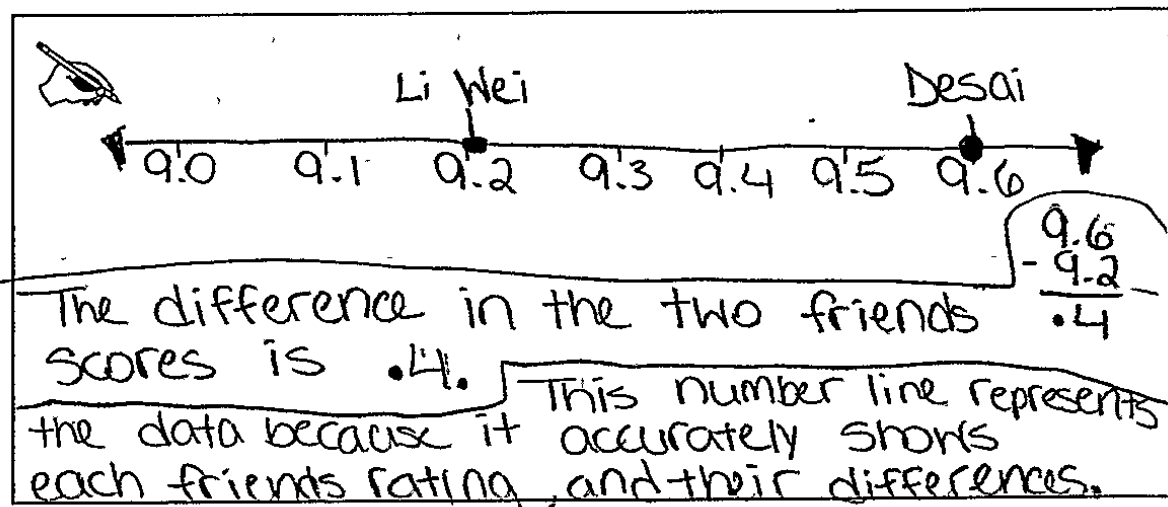 Li Wei Desai
9.0 9.1 9.2 9.3 9.4 9.5 9.6
9.6
- 9.2
.4
The difference in the two friends
scores is .4.
This number line represents
the data because it accurately shows
each friends rating, and their differences.